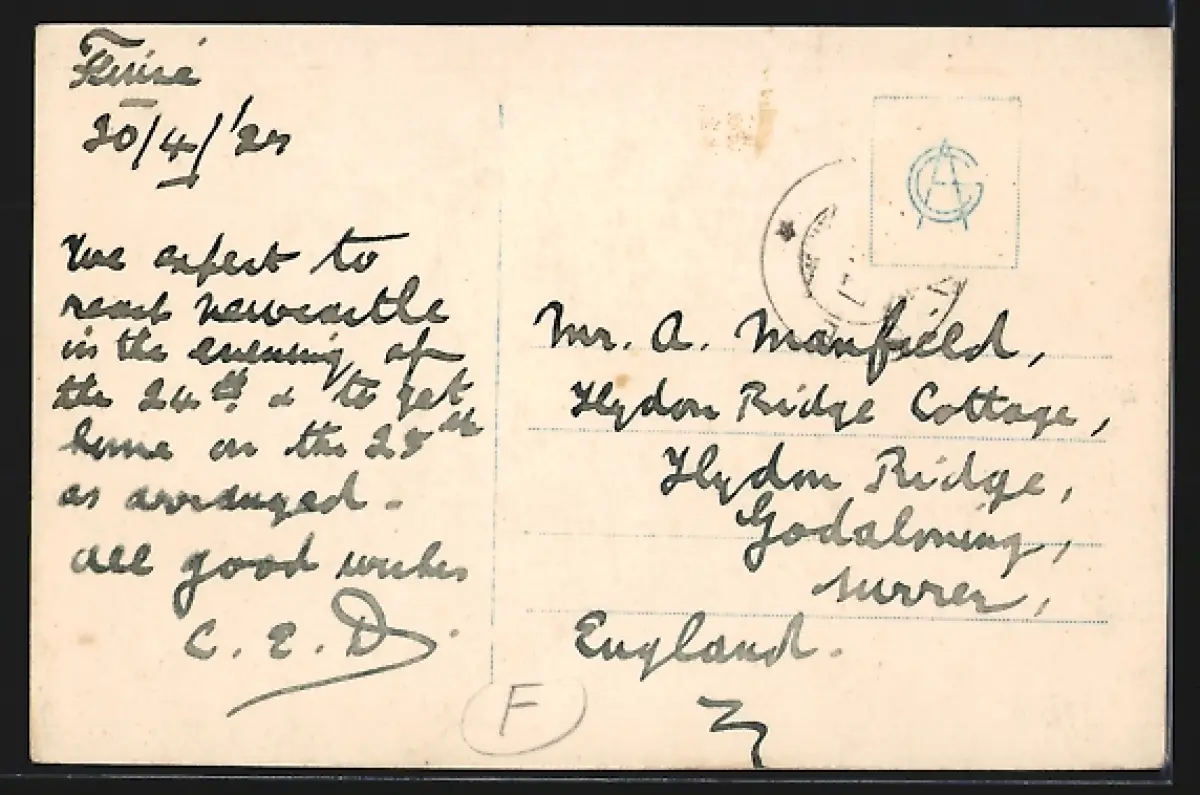 20/4/'25
We expect to
reach Newcastle
in the evening of
the 24th & to get
home on the 25th
as arranged.
All good wishes
C. E. D.
Mr. A. Manfield,
Hydon Ridge Cottage,
Hydon Ridge,
Godalming,
Surrey,
England.
F